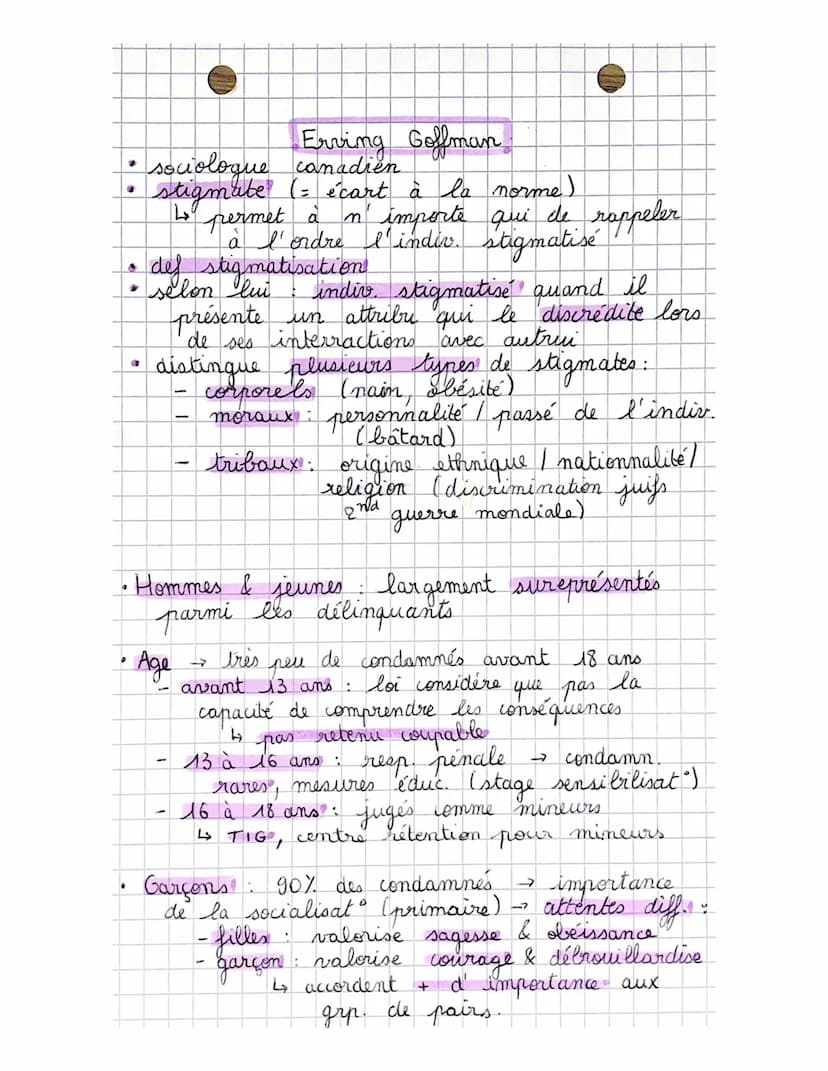 Erving Goffman
• sociologue canadien
• stigmate (= écart à la norme)
↳ permet à n'importe qui de rappeler
à l'ordre l'indiv. stigmatisé
• def stigmatisation
• selon lui : indiv. stigmatisé quand il
présente un attribu qui le discrédite lors
de ses interractions avec autrui
• distingue plusieurs types de stigmates :
- corporels (nain, obésité)
- moraux : personnalité / passé de l'indiv.
(bâtard)
- tribaux : origine ethnique / nationnalité /
religion (discrimination juifs
2nd guerre mondiale)
• Hommes & jeunes : largement sureprésentés
parmi les délinquants
• Age → très peu de condamnés avant 18 ans
- avant 13 ans : loi considère que pas la
capacité de comprendre les conséquences
↳ pas retenu coupable
- 13 à 16 ans : resp. pénale → condamn.
rares, mesures éduc. (stage sensibilisat°)
- 16 à 18 ans : jugés comme mineurs
↳ TIG, centre rétention pour mineurs
• Garçons : 90% des condamnés → importance
de la socialisat° (primaire) → attentes diff. :
- filles : valorise sagesse & obéissance
- garçon : valorise courage & débrouillardise
↳ accordent + d'importance aux
grp. de pairs.